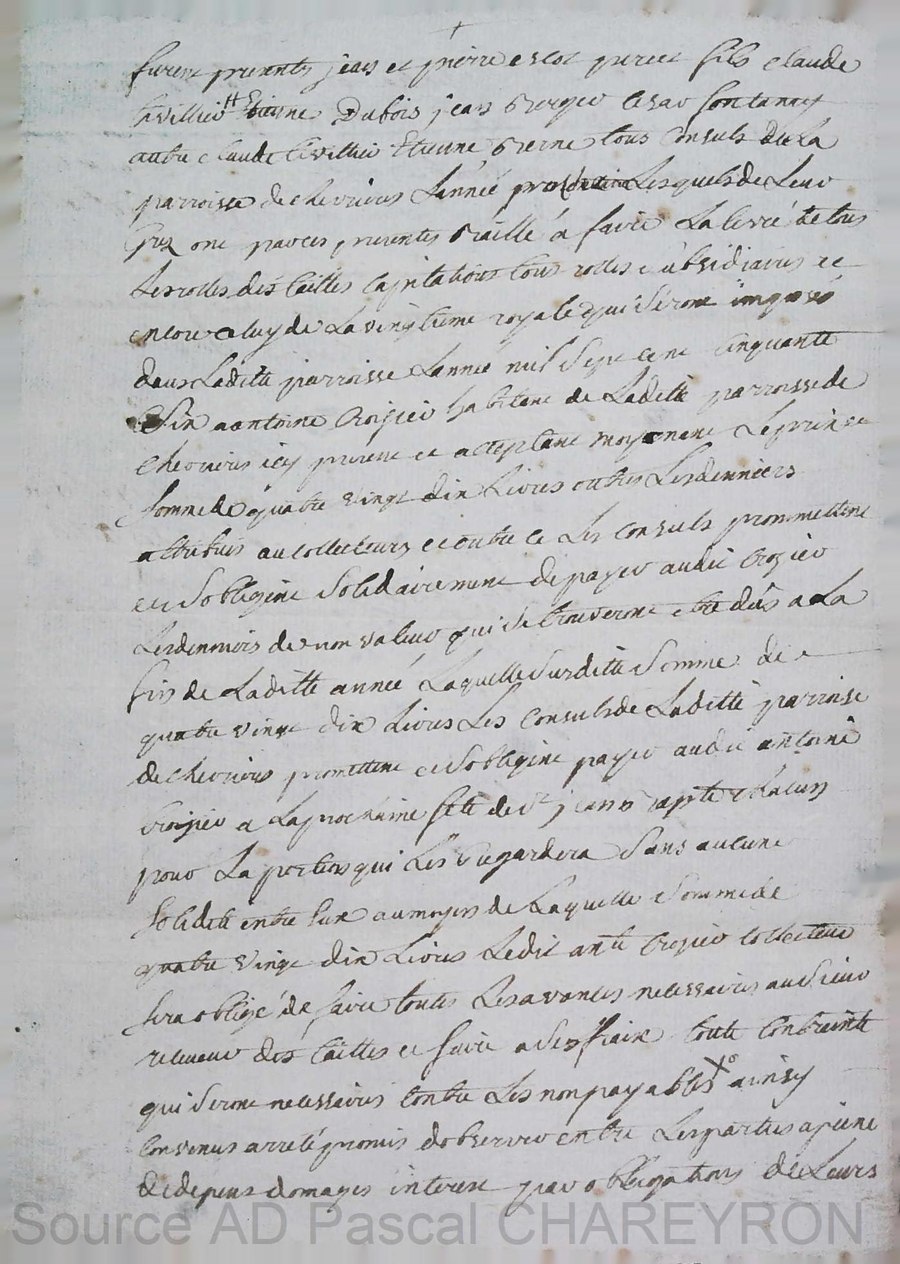 furent presents jean et pierre escot pere et fils claude
tivillier Etienne Dubois jean Crozier Cesar fontanay
autre claude tivillier Etienne tous Consuls de la
parroisse de chevrieres Lannée Lesquels de Leur
gré ont par ces presentes baillé a faire La levée de tous
Les rolles des tailles capitations tous rolles subsidiaires et
encore celuy de La vingtieme royale qui seront imposé
dans Laditte parroisse Lannée mil sept cent cinquante
six a antoine Crozier habitant de Laditte parroisse de
chevrieres icy present et acceptant moyenant Le prix et
somme de quatre vingt dix Livres outres Les denniers
attribués au collecteurs et outre ce Les Consuls promettent
et sobligent solidairement de payer audit Crozier
Les denniers de non valeur qui se trouveront etre dus a La
fin de Laditte année Laquelle surditte somme de
quatre vingt dix Livres Les Consuls de Laditte parroise
de chevrieres promettent et sobligent payer audit antoine
Crozier a La prochaine fete de st jean baptte chacun
pour La portion qui Les regardera sans aucune
solidité entre eux au moyen de Laquelle somme de
quatre vingt dix Livres Ledit ante Crozier collecteur
sera obligé de faire toutes Les avances necessaires au sieur
receveur des tailles et faire a ses fraix toute contrainte
qui seront necessaires contre Les non payables ainsy
Convenus arreté promis dobserver entre Les parties a peine
de depens domages interest par obligations de Leurs
Source AD Pascal CHAREYRON